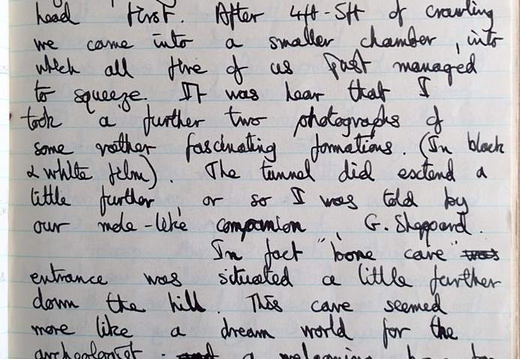 head first. After 4ft-5ft of crawling
we came into a smaller chamber, into
which all five of us just managed
to squeeze. It was hear that I
took a further two photographs of
some rather fascinating formations. (In black
& white film). The tunnel did extend a
little further or so I was told by
our mole-like companion, G. Sheppard.
In fact "bone cave" was
entrance was situated a little further
down the hill. This cave seemed
more like a dream world for the
archeologist. a welcoming